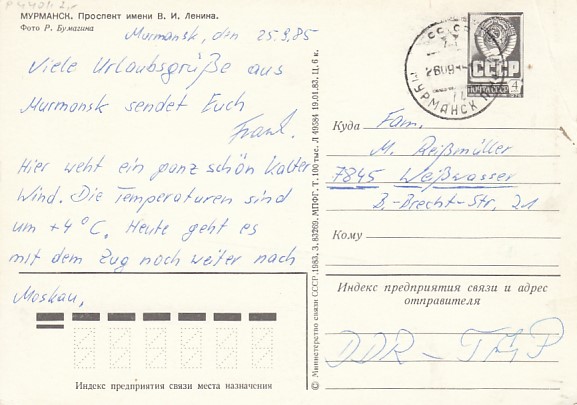 МУРМАНСК. Проспект имени В. И. Ленина.
Фото Р. Бумагина
Murmansk, den 25.9.85
Viele Urlaubsgrüße aus
Murmansk sendet Euch
Frank.
Hier weht ein ganz schön kalter
Wind. Die Temperaturen sind
um +4°C. Heute geht es
mit dem Zug noch weiter nach
Moskau.
Индекс предприятия связи места назначения
© Министерство связи СССР. 1983. З. 83269. МПФГ. Т. 100 тыс. Л 49584 19.01.83. Ц. 6 к.
СССР
ПОЧТА
4
МУРМАНСК
Куда Fam.
M. Reißmüller
7845 Weißwasser
B.-Brecht-Str. 21
Кому
Индекс предприятия связи и адрес
отправителя
DDR - TMP